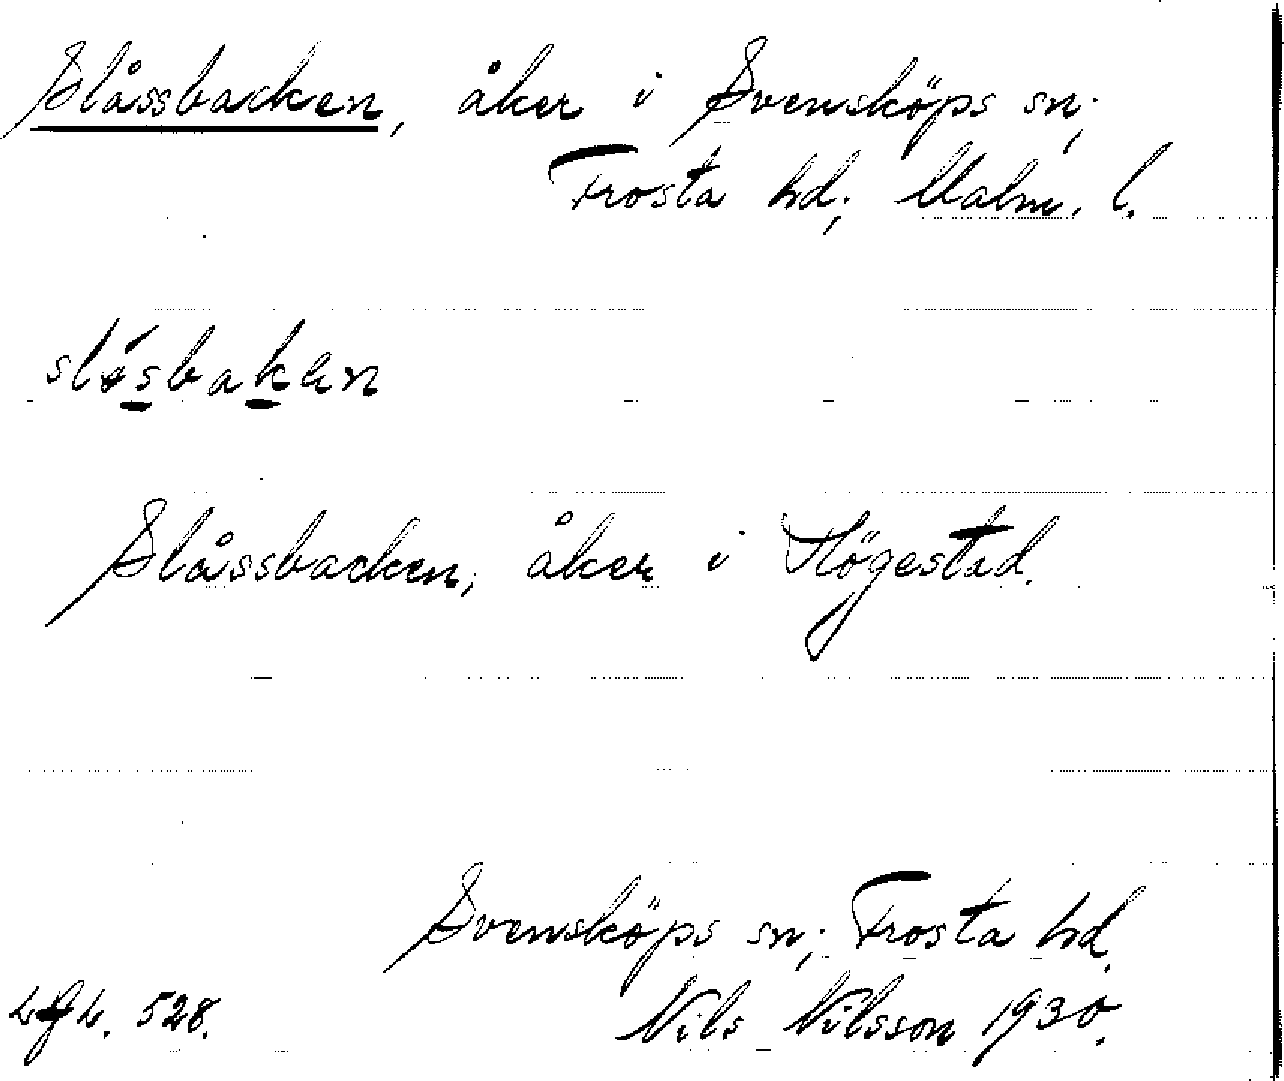 Slåssbacken, åker i Svensköps sn;
Frosta hd; Malm. l.
slǿsbakan
Slåssbacken, åker i Högestad.
Svensköps sn; Frosta hd.
528. Nils Nilsson 1930.